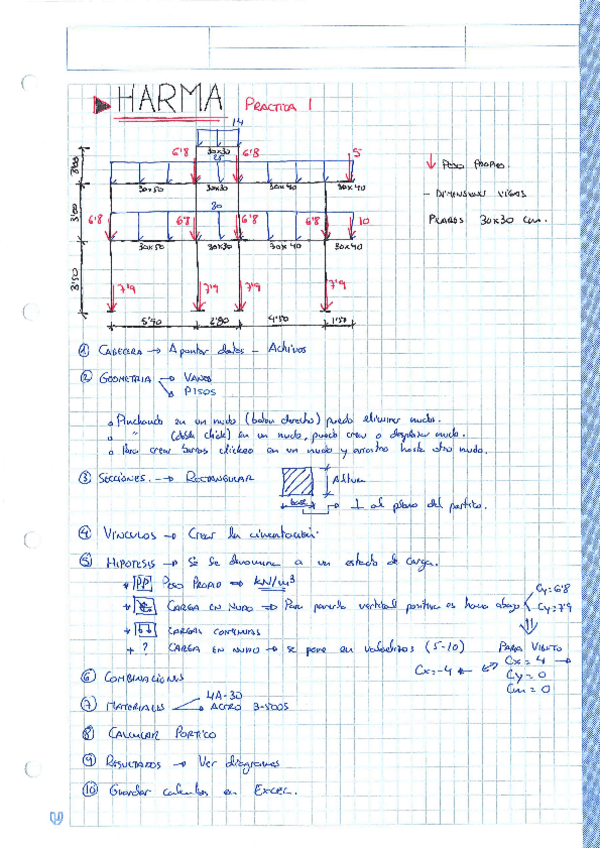 HARMA PRACTICA 1
14
30x30
6'8 6'8 5
28
30x50 30x30 30x40 30x40
3'00
3'00
3'50
80
6'8 6'8 6'8 6'8 10
30x50 30x30 30x40 30x40
7'9 7'9 7'9 7'9
5'40 2'80 4'50 1'50
↓ PESO PROPIO.
- DIMENSIONES VIGAS
PILARES 30x30 cm.
① CABECERA → Apuntar datos - Achivos
② GEOMETRIA → VANOS
→ PISOS
o Pinchando en un nudo (boton derecho) puedo eliminar nudo.
o " (doble click) en un nudo, puedo crear o desplazar nudo.
o Para crear barras clickeo en un nudo y arrastro hasta otro nudo.
③ SECCIONES. → RECTANGULAR
Altura
base
→ ⊥ al plano del portico.
④ VINCULOS → Crear la cimentación.
⑤ HIPOTESIS → Se denomina a un estado de carga.
+ PP PESO PROPIO ⇒ kN/m³
+ CARGA EN NUDO ⇒ Para ponerla vertical positiva es hacia abajo
Cy=6'8
Cy=7'9
+ CARGAS CONTINUAS
+ ? CARGA EN NUDO → se pone en voladizos (5-10)
PARA VIENTO
Cx=-4 ←
Cx = 4 →
Cy = 0
Cm = 0
⑥ COMBINACIONES
⑦ MATERIALES HA-30
ACERO B-500S
⑧ CALCULAR PORTICO
⑨ RESULTADOS → Ver diagramas
⑩ Guardar calculos en EXCEL.